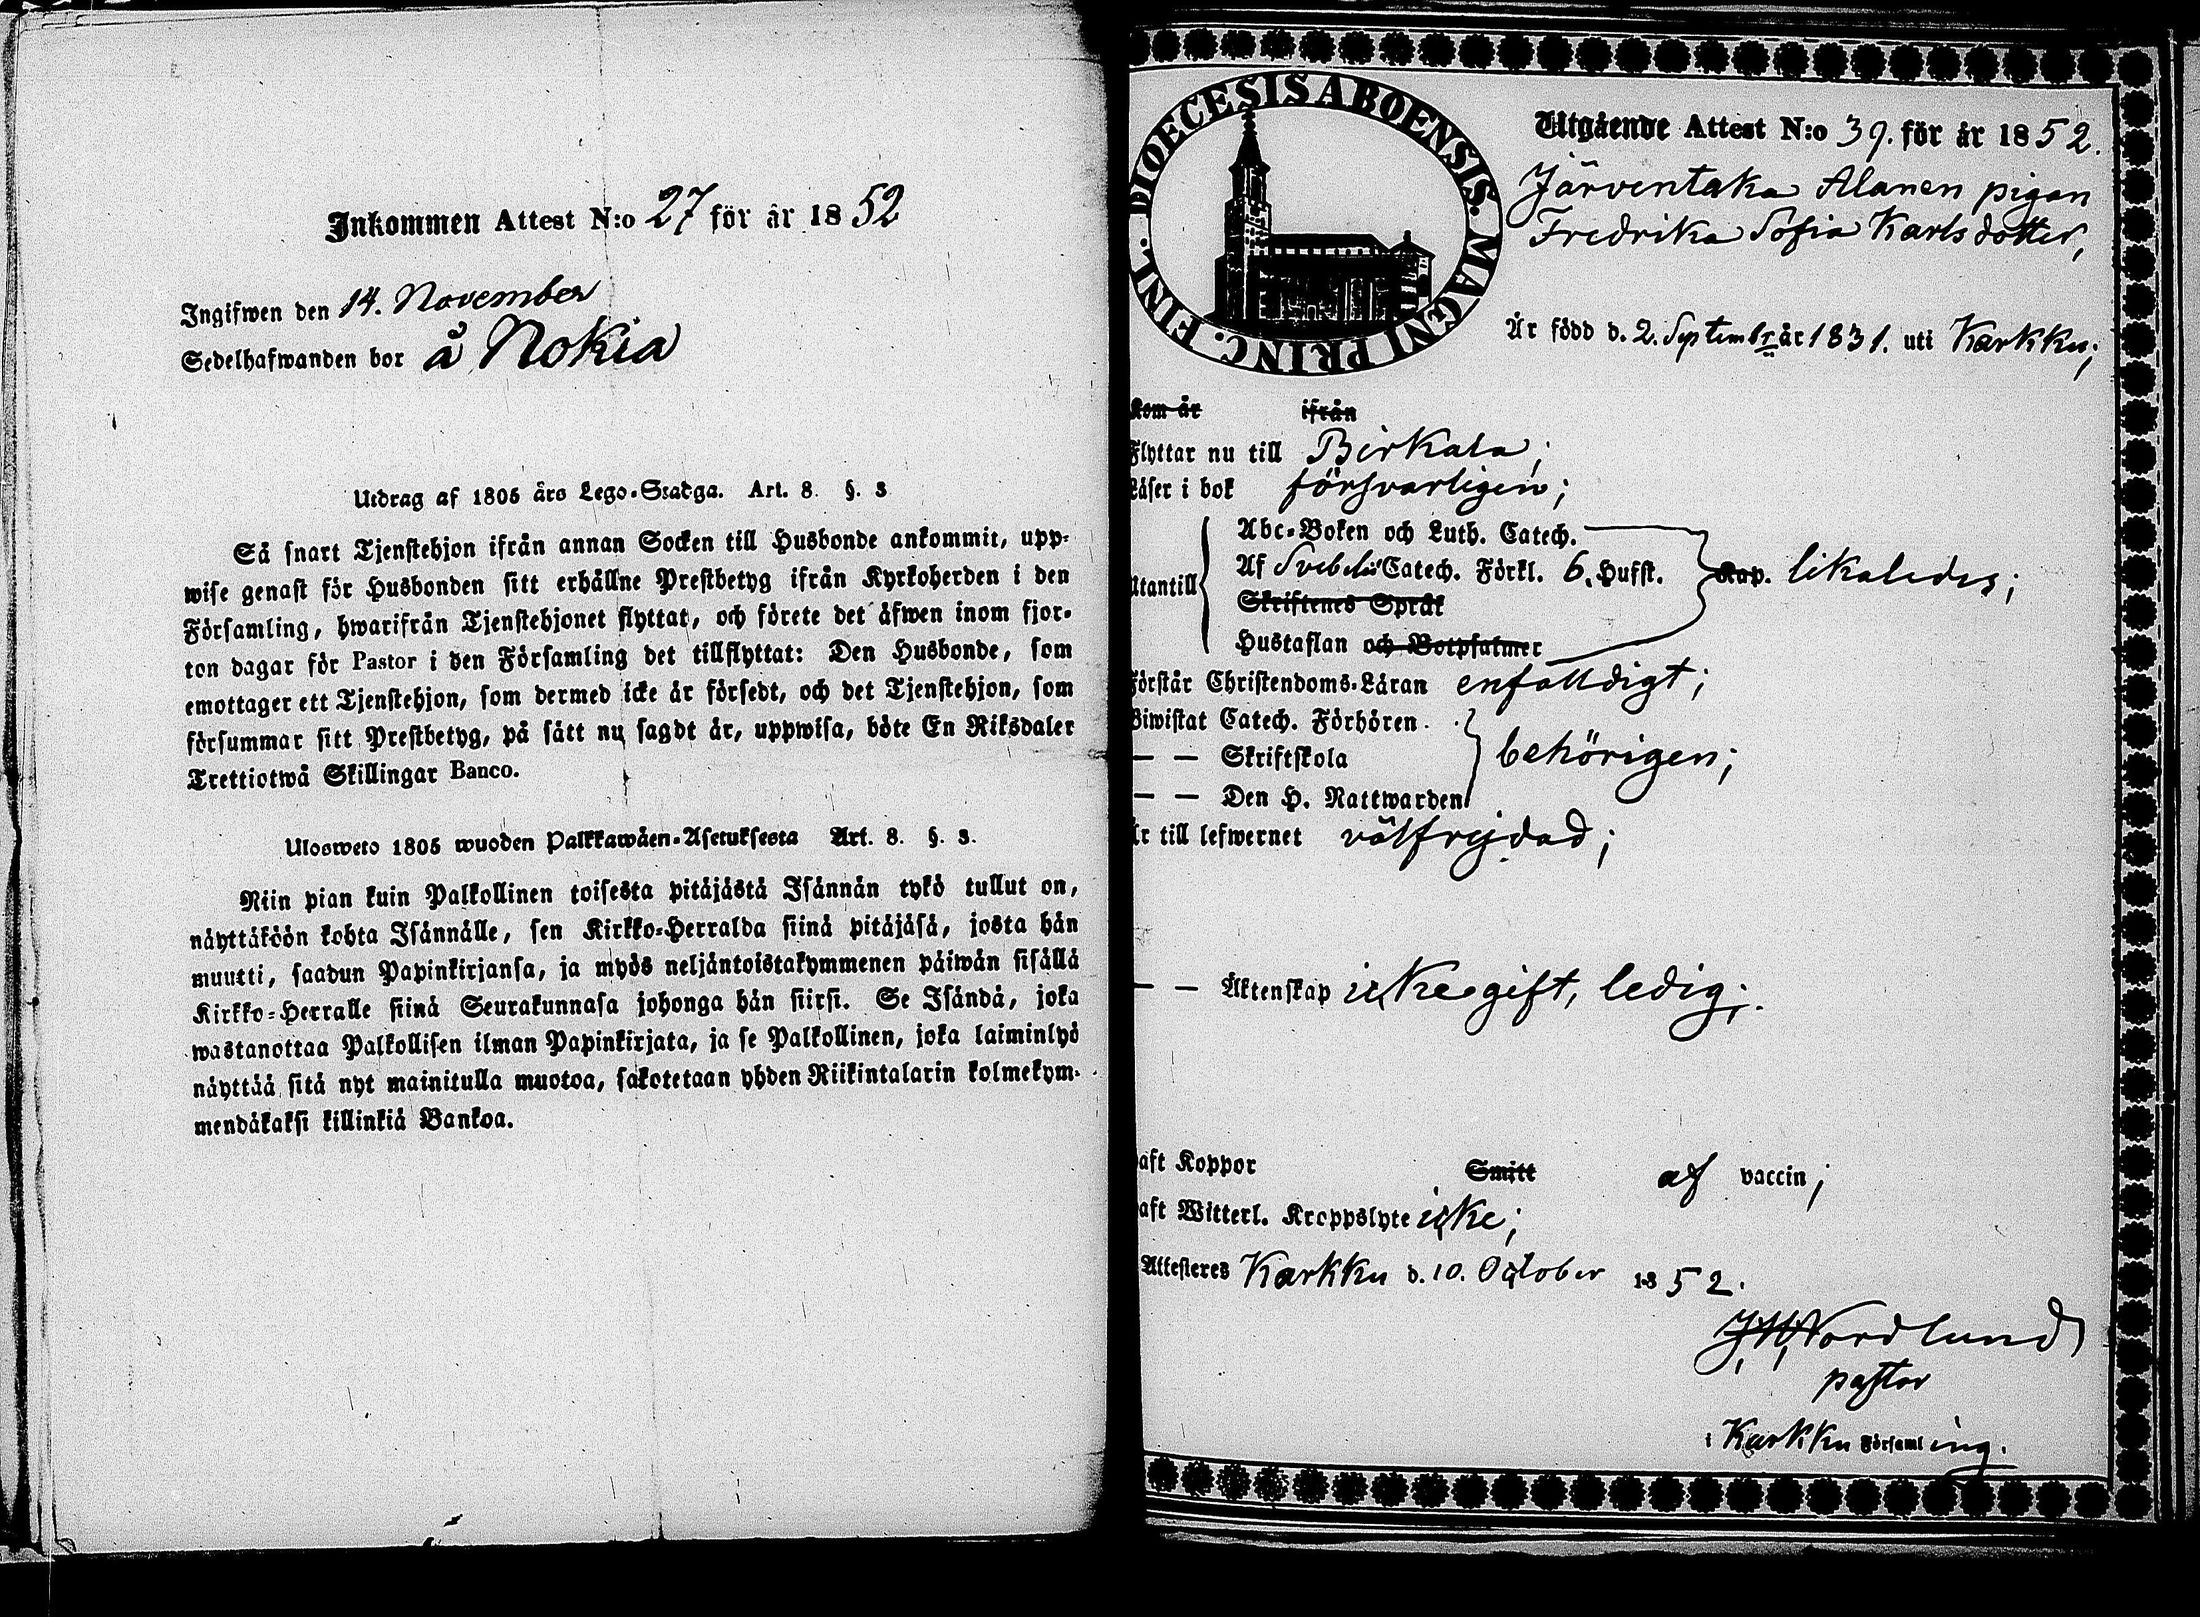 Inkommen Attest N:o 27 för år 1852
Ingifwen den 14. November
Sedelhafwanden bor å Nokia
Utdrag af 1805 års Lego-Stadga. Art. 8. §. 3
Så snart Tjenstehjon ifrån annan Socken till Husbonde ankommit, upp-
wise genast för Husbonden sitt erhållne Prestbetyg ifrån Kyrkoherden i den
Församling, hwarifrån Tjenstehjonet flyttat, och förete det äfwen inom fjor-
ton dagar för Pastor i den Församling det tillflyttat: Den Husbonde, som
emottager ett Tjenstehjon, som dermed icke är försedt, och det Tjenstehjon, som
försummar sitt Prestbetyg, på sätt nu sagdt är, uppwisa, böte En Riksdaler
Trettiotwå Skillingar Banco.
Ulosweto 1805 wuoden Palkkawäen-Asetuksesta Art. 8. §. 3.
Niin pian kuin Palkollinen toisesta pitäjästä Isännän tykö tullut on,
näyttäköön kohta Isännälle, sen Kirkko-Herralda siinä pitäjäsä, josta hän
muutti, saadun Papinkirjansa, ja myös neljäntoistakymmenen päiwän sisällä
Kirkko-Herralle siinä Seurakunnasa johonga hän siirsi. Se Isändä, joka
wastanottaa Palkollisen ilman Papinkirjata, ja se Palkollinen, joka laiminlyö
näyttää sitä nyt mainitulla muotoa, sakotetaan yhden Riikintalarin kolmekym-
mendäkaksi killinkiä Bankoa.
DIOECESIS ABOENSIS. MAGNI PRINC. FINL.
Utgående Attest N:o 39. för år 1852.
Järventaka Alanen pigan
Fredrika Sofia Karlsdotter,
Är född d. 2. Septembr år 1831. uti Karkku;
Kom år ifrån
Flyttar nu till Birkala;
Läser i bok försvarligen;
Abc-Boken och Luth. Catech.
Utantill Af Svebelii Catech. Förkl. 6. Hufst. Kap. likaledes;
Skriftenes Språk
Hustaflan och Botpsalmer
Förstår Christendoms-Läran enfalldigt;
Biwistat Catech. Förhören
— — Skriftskola behörigen;
— — Den H. Nattwarden
Är till lefwernet välfrejdad;
— — Äktenskap icke gift, ledig;.
aft Koppor Smitt af vaccin;
aft Witterl. Kroppslyte icke;
Attesteres Karkku d. 10. October 1852.
J. W. Nordlund
pastor
i Karkku Församling.